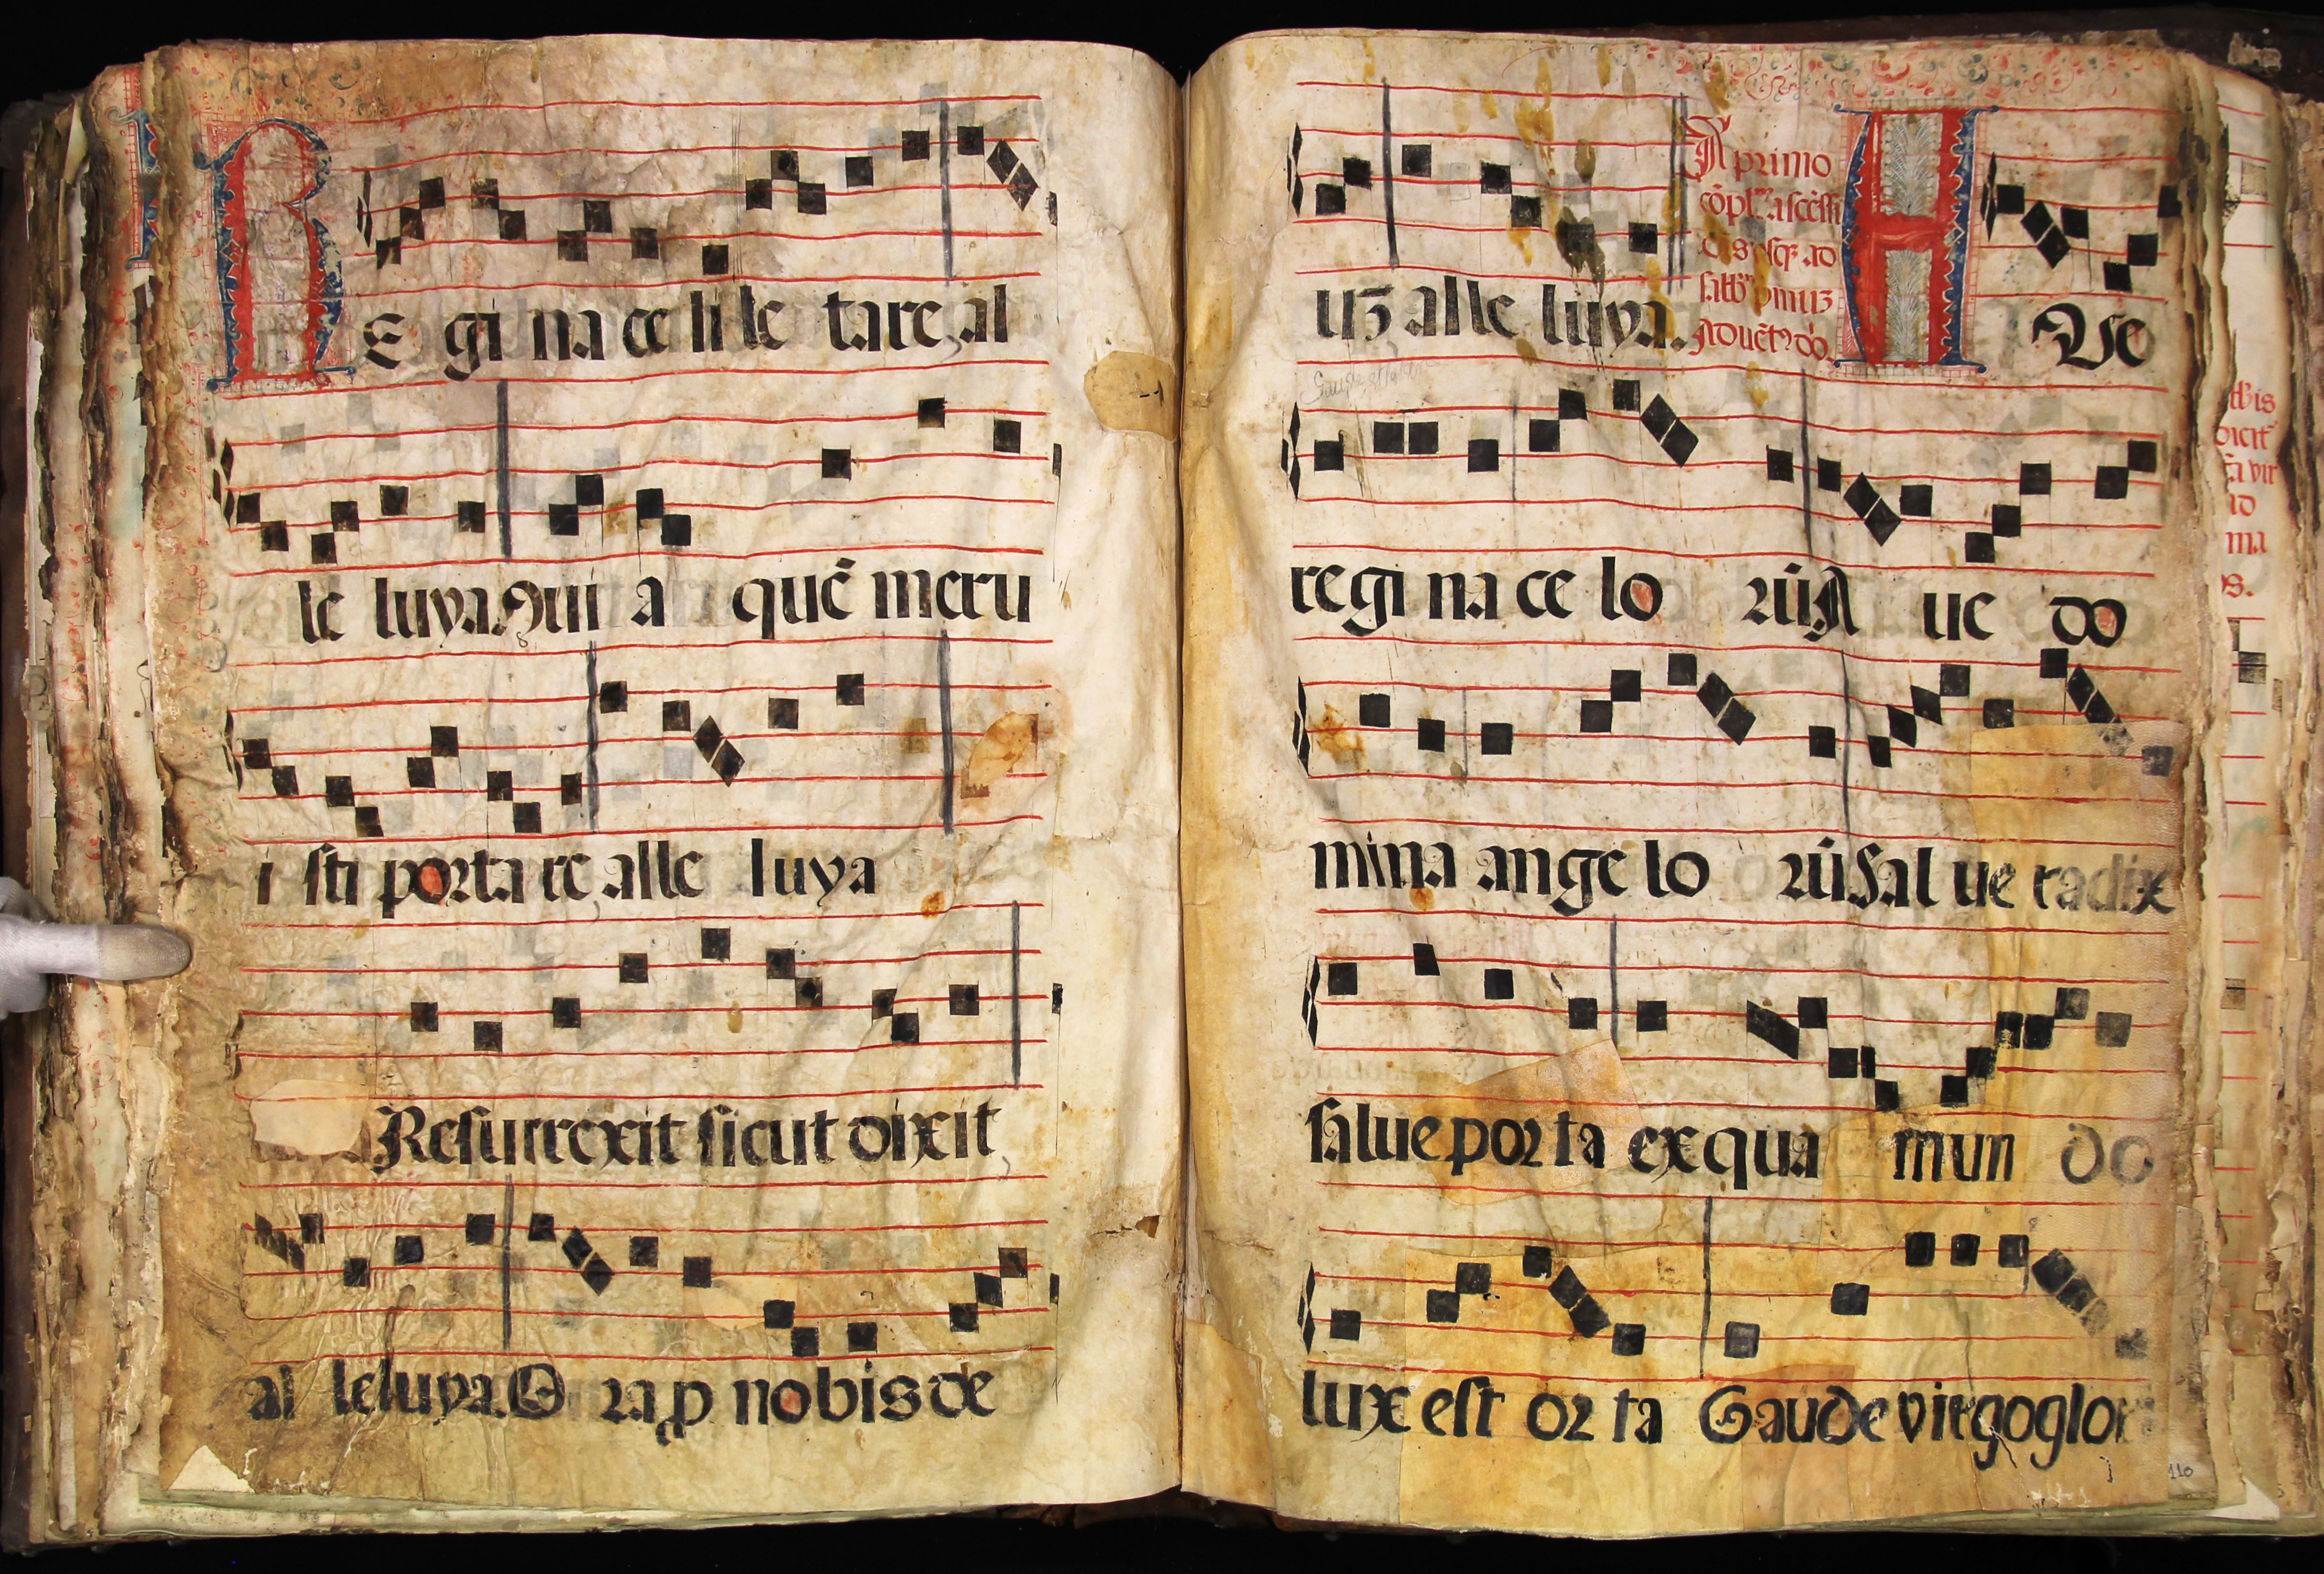 RE gi na ce li le tare al
le luya Qui a quē meru
i sti porta re alle luya
Resurrexit sicut dixit
al leluya. O ra p nobis de
uʒ alle luya.
A primo
ad
AVe
regi na ce lo rūA ue do
mina ange lo rūSal ue radix
salue por ta ex qua mun do
lux est or ta Gaude virgo glori
110